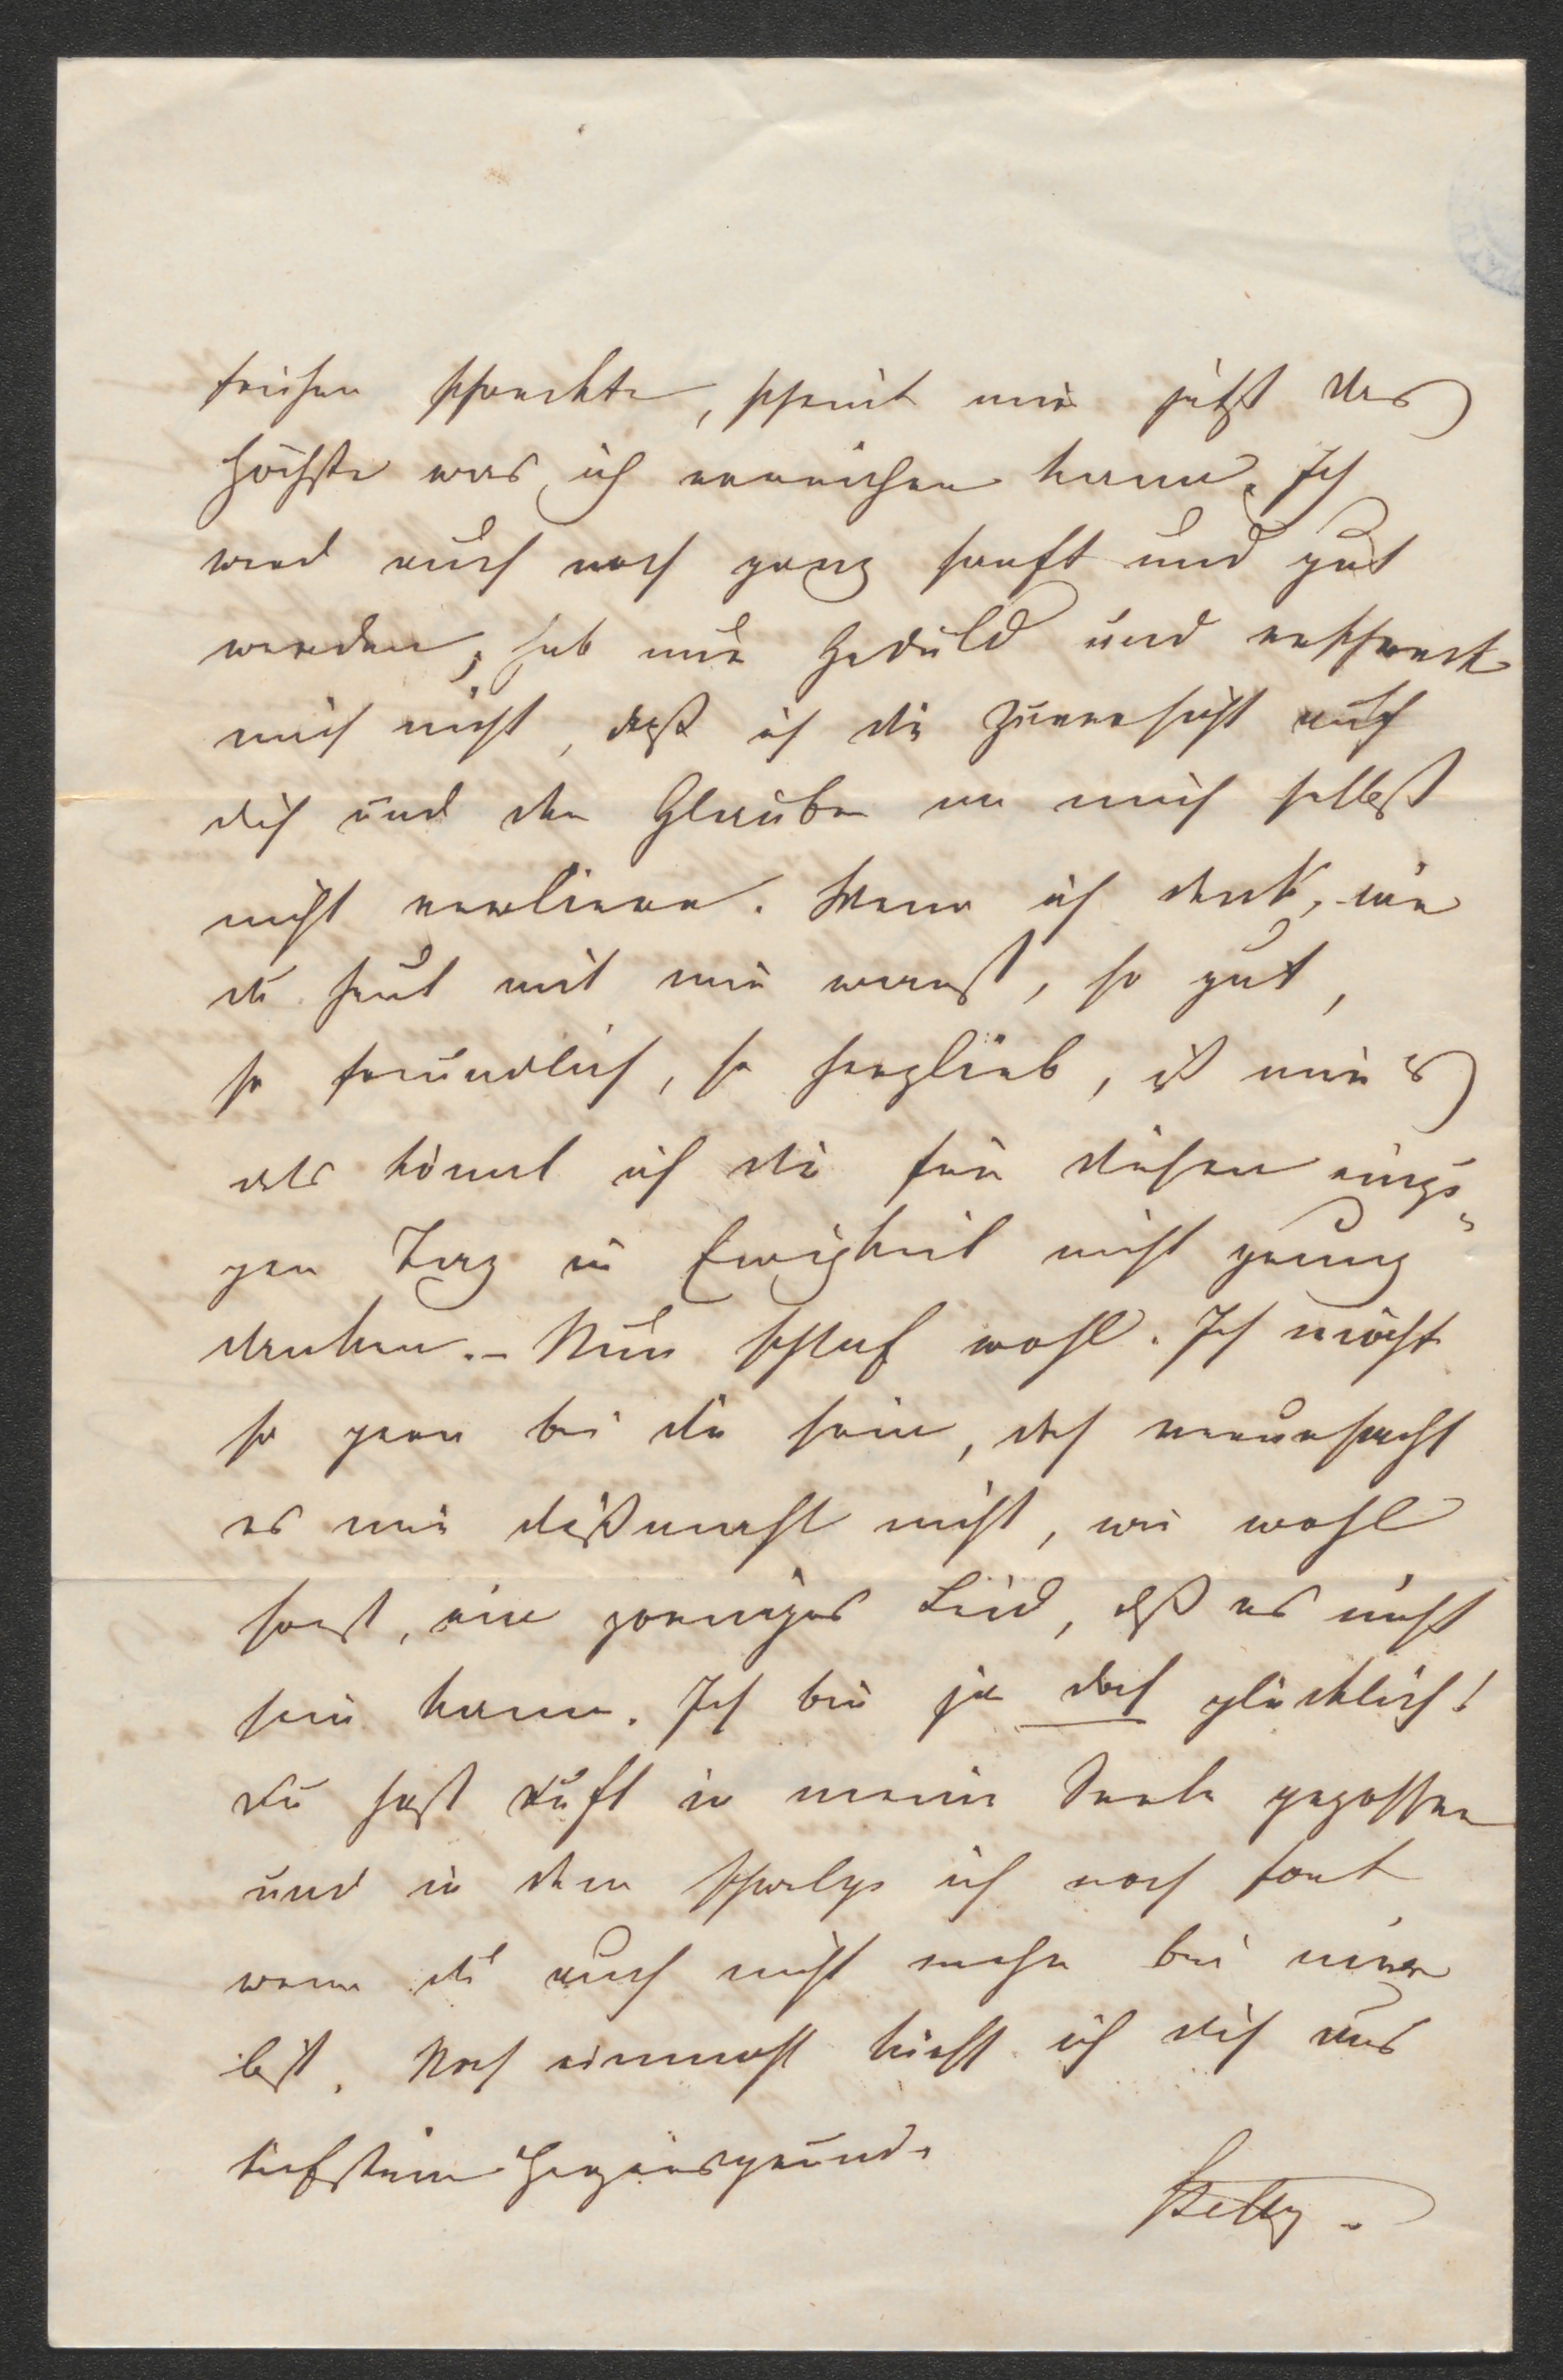 frühern schreckte, scheint mir jetzt das
Höchste was ich erreichen kann. Ich
werd auch noch ganz sanft und gut
werden, hab nur Geduld und erschreck
mich nicht, daß ich die Zuversicht auf
dich und den Glauben an mich selbst
nicht verliere. Wenn ich denk, wie
du heut mit mir warst, so gut,
so freundlich, so herzlieb, ist mir's
als könnt ich dir für diesen einzi¬
gen Tag in Ewigkeit nicht genug
danken. – Nun schlaf wohl. Ich möcht
so gern bei dir sein, doch verursacht
es mir dießmahl nicht, wie wohl
sonst, ein zorniges Leid, dß es nicht
sein kann. Ich bin ja doch glücklich!
Du hast Duft in meine Seele gegossen
und in dem schwelge ich noch fort
wenn du auch nicht mehr bei mir
bist. Noch einmahl küsse ich dich aus
tiefstem Herzensgrunde
Betty.